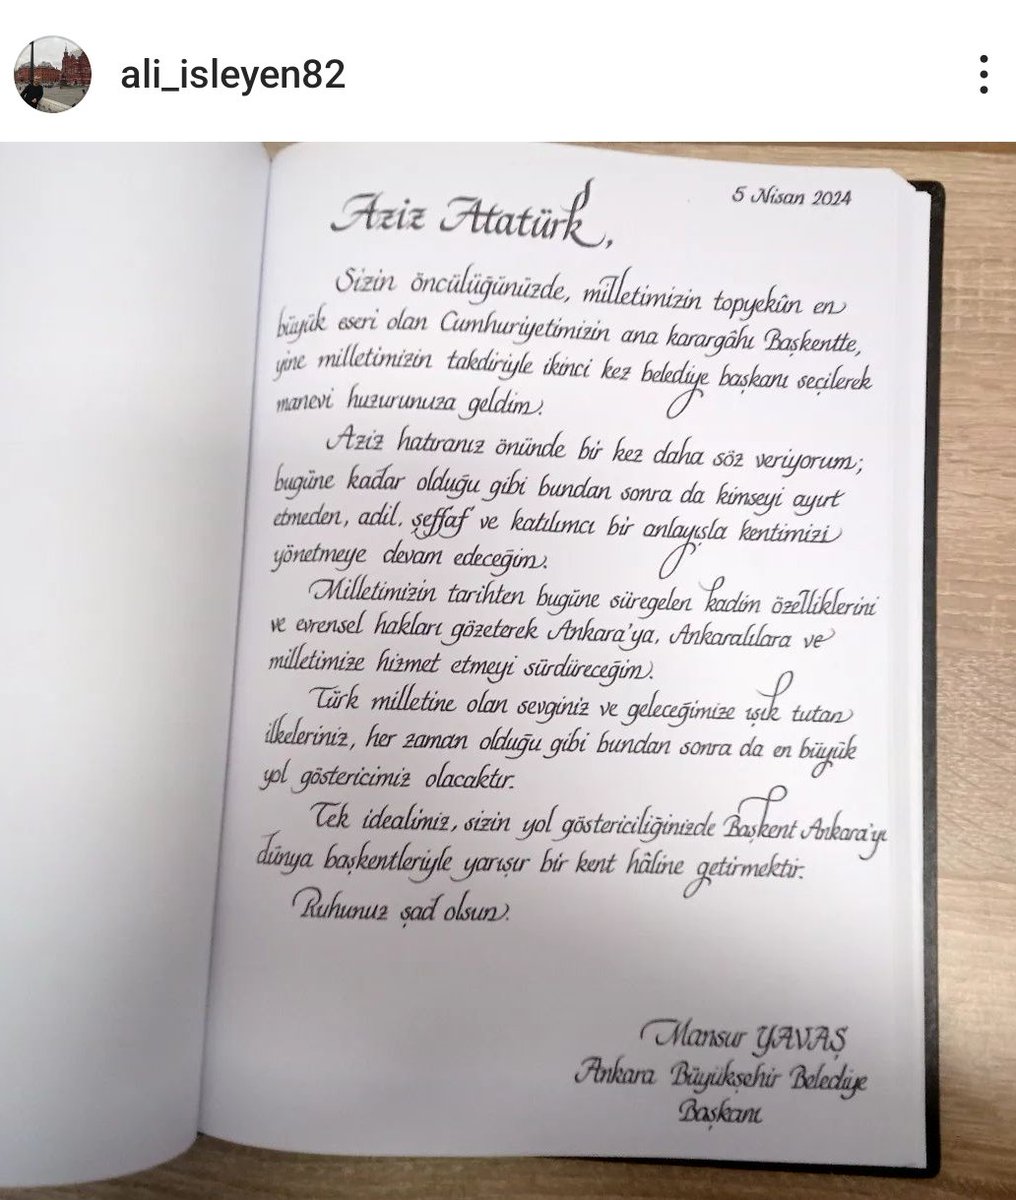 ali_isleyen82
5 Nisan 2024
Aziz Atatürk,
Sizin öncülüğünüzde, milletimizin topyekûn en
büyük eseri olan Cumhuriyetimizin ana karargâhı Başkentte,
yine milletimizin takdiriyle ikinci kez belediye başkanı seçilerek
manevi huzurunuza geldim.
Aziz hatıranız önünde bir kez daha söz veriyorum;
bugüne kadar olduğu gibi bundan sonra da kimseyi ayırt
etmeden, adil, şeffaf ve katılımcı bir anlayışla kentimizi
yönetmeye devam edeceğim.
Milletimizin tarihten bugüne süregelen kadim özelliklerini
ve evrensel hakları gözeterek Ankara'ya, Ankaralılara ve
milletimize hizmet etmeyi sürdüreceğim.
Türk milletine olan sevginiz ve geleceğimize ışık tutan
ilkeleriniz, her zaman olduğu gibi bundan sonra da en büyük
yol göstericimiz olacaktır.
Tek idealimiz, sizin yol göstericiliğinizde Başkent Ankara'yı
dünya başkentleriyle yarışır bir kent hâline getirmektir.
Ruhunuz şad olsun.
Mansur YAVAŞ
Ankara Büyükşehir Belediye
Başkanı